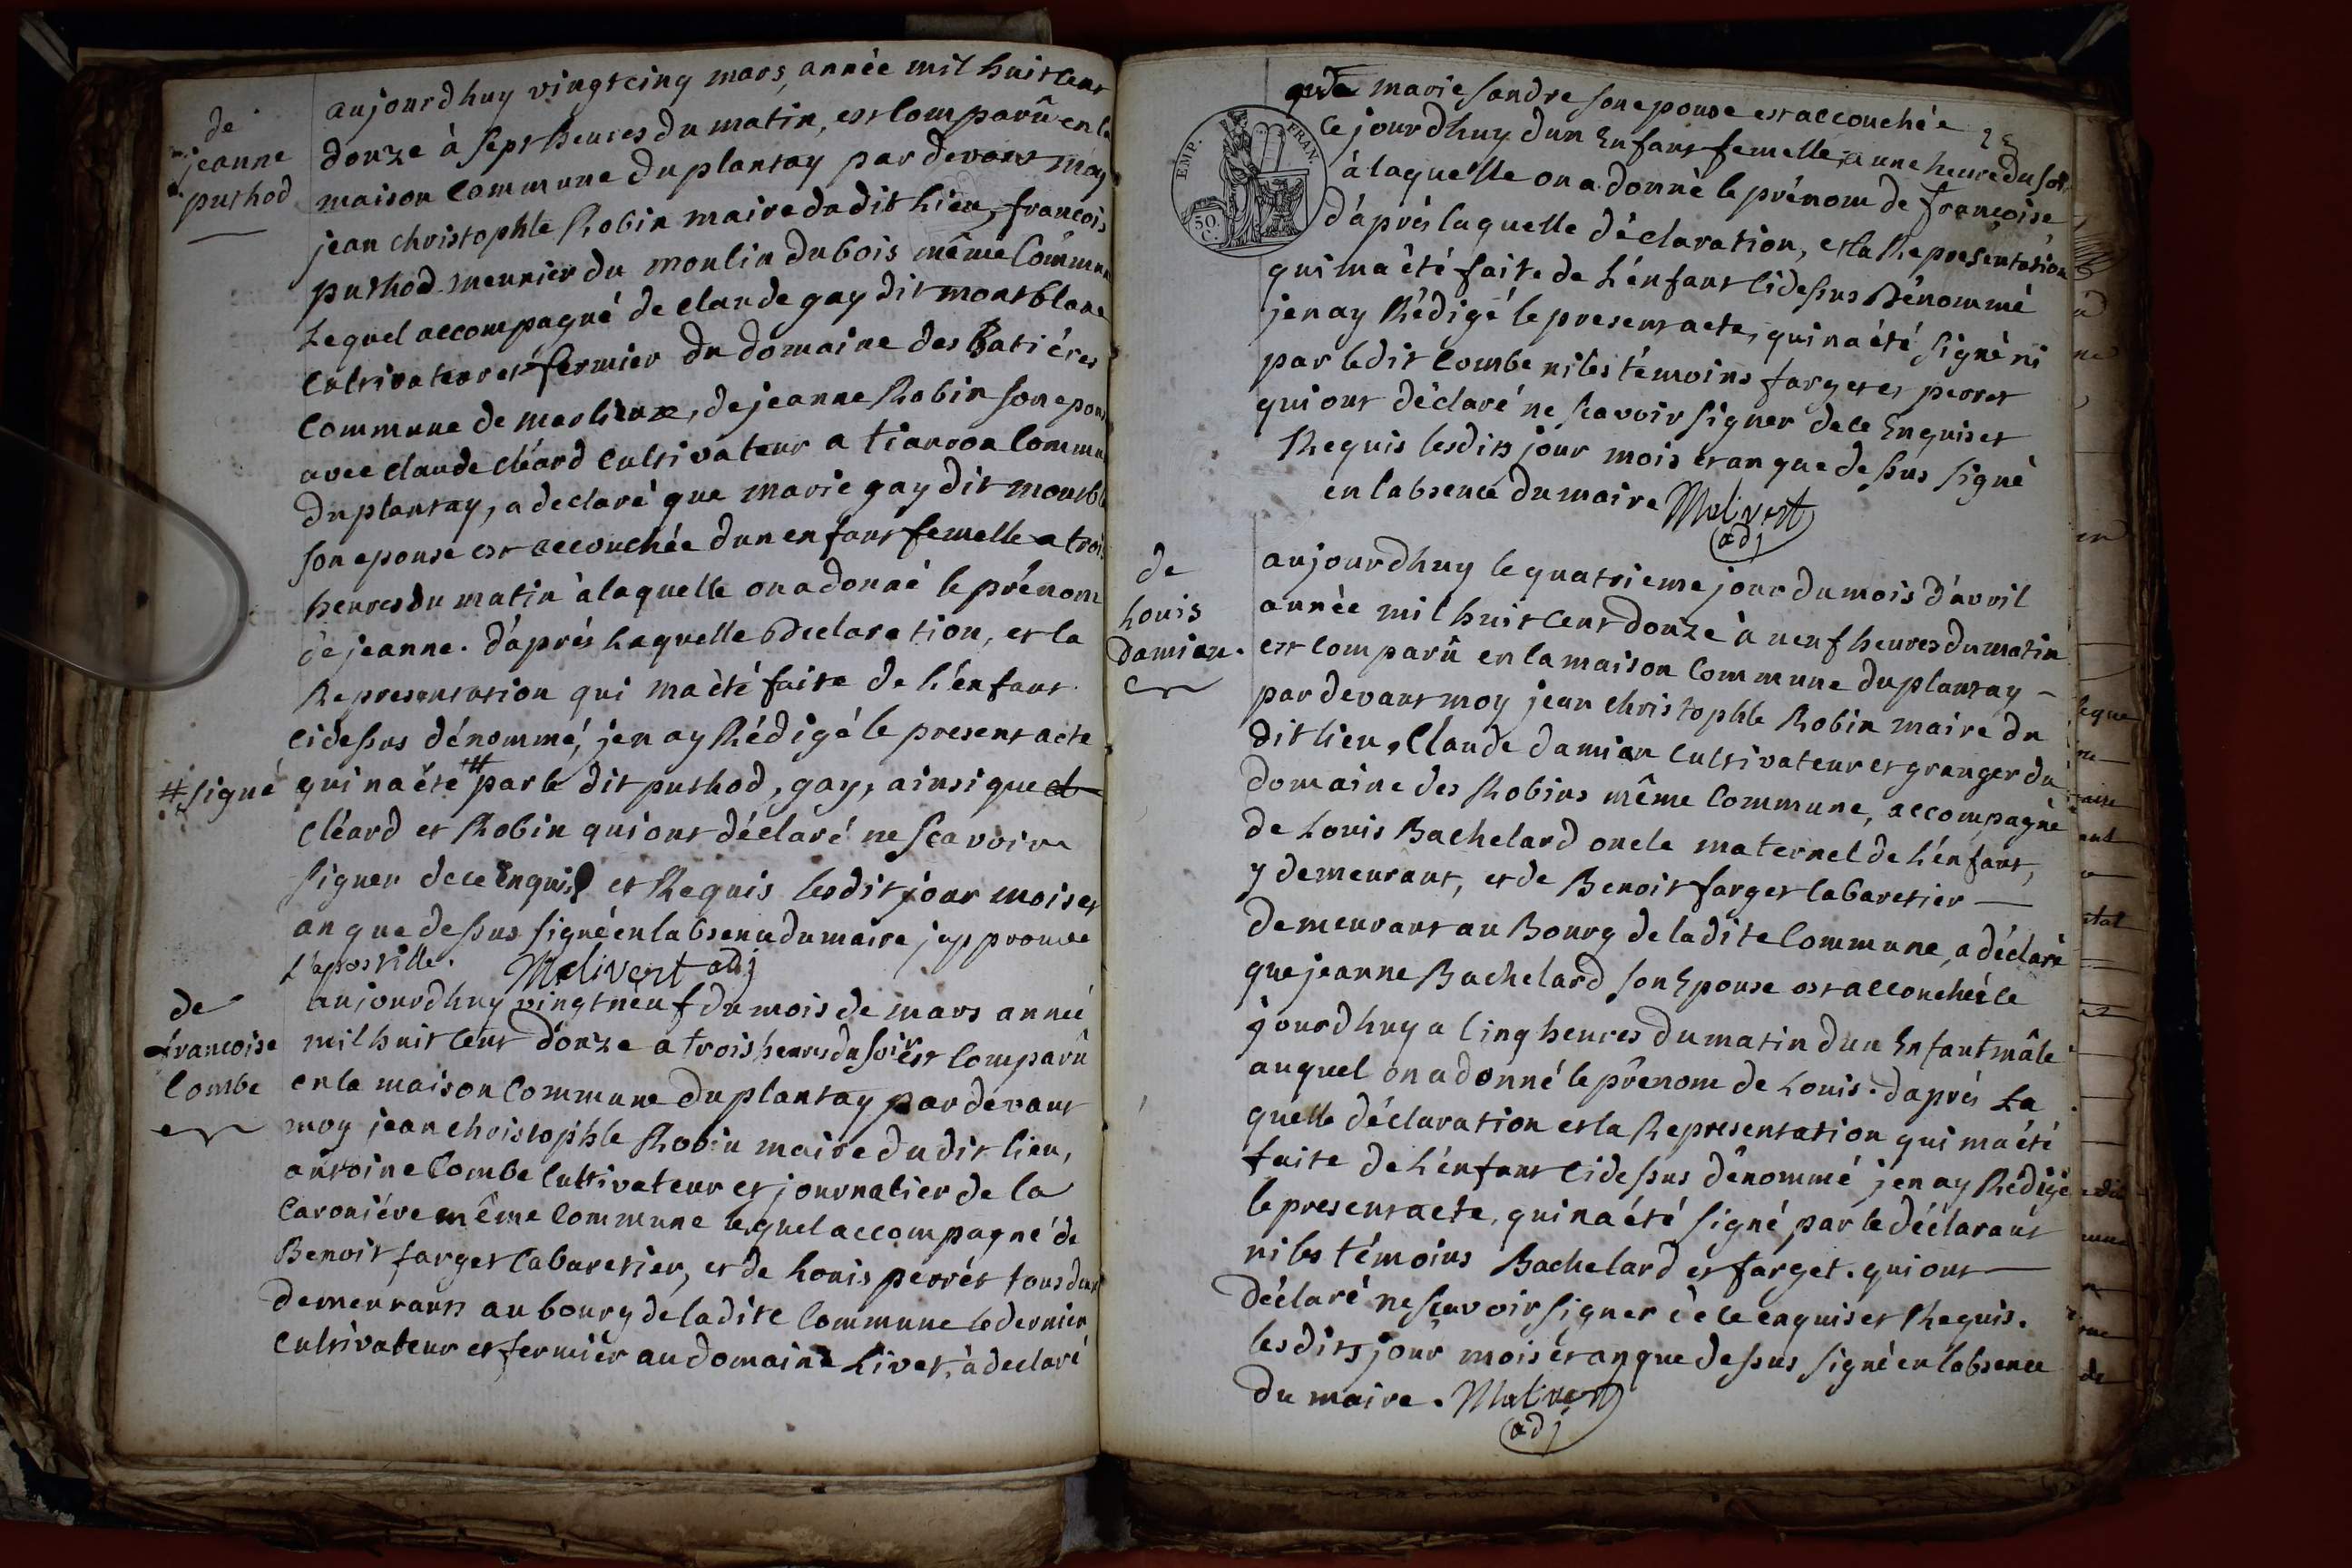 de
jeanne
puthod
aujourdhuy vingtcinq mars, année mil huit cent
douze à sept heures du matin, est comparû en la
maison commune du plantay par devant moy
jean christophle Robin maire du dit lieu, francois
puthod meunier du moulin du bois même commune
Lequel accompagné de claude gay dit montblanc
cultivateur et fermier du domaine des Batiéres
commune de marlieux, de jeanne Robin son epouse
avec claude cléard cultivateur a commune
du plantay, a declaré que marie gay dit montbl
son epouse est accouchée dun enfant femelle a trois
heures du matin à laquelle on a donné le prénom
de jeanne. d'aprés Laquelle declaration, et la
Representation qui ma été faite de L'énfant
cidessus dénommé, jen ay Rédigé le present acte
# signé
qui na été # par le dit puthod, gay, ainsi que et
cléard et Robin qui ont déclaré ne sçavoir
signer de ce Enquis et Requis lesdit jour mois et
an que dessus signé en labsence du maire japprouve
L'apostille. Melivert adj
de
francoise
Combe
aujourdhuy vingtneuf du mois de mars année
mil huit cent douze a trois heures du soir est comparû
en la maison commune du plantay par devant
moy jean christophle Robin maire du dit lieu,
antoine Combe cultivateur et journalier de la
caroniére même commune lequel accompagné de
Benoit farget cabaretier, et de Louis perrét tous deux
demeurants au bourg de ladite commune le dernier
cultivateur et fermier au domaine Livet, à declaré
EMP. FRAN.
50 C.
25
que marie sandre son epouse est accouchée
ce jourdhuy dun Enfant femelle, a une heure du soir
à laquelle on a donné le prénom de françoise
d'aprés laquelle déclaration, et la Representation
qui ma été faite de L'énfant cidessus dénommé
jen ay Rédigé le present acte, qui na été signé ni
par ledit Combe ni les témoins farget et perret
qui ont déclaré ne scavoir signer de ce Enquis et
Requis lesdits jour mois et an que dessus signé
en labsence du maire Melivert
adj
de
Louis
Damian.
aujourdhuy le quatrieme jour du mois d'avril
année mil huit cent douze à neuf heures du matin
est comparû en la maison commune du plantay
par devant moy jean christophle Robin maire du
dit lieu, Claude damian cultivateur et granger du
domaine des Robins même commune, accompagné
de Louis Bachelard oncle maternel de L'énfant,
y demeurant, et de Benoit farget cabaretier
demeurant au Bourg de ladite commune, a déclaré
que jeanne Bachelard son Epouse est accouchée ce
jourdhuy a cinq heures du matin dun Enfant mâle
auquel on a donné le prénom de Louis. daprés La
quelle déclaration et la Representation qui ma été
faite de L'énfant cidessus dénommé jen ay Rédigé
le present acte, qui na été signé par le déclarant
ni les témoins Bachelard et farget. qui ont
déclaré ne scavoir signer de ce enquis et Requis.
les dits jour mois et an que dessus signé en labsence
du maire. Melivert
adj